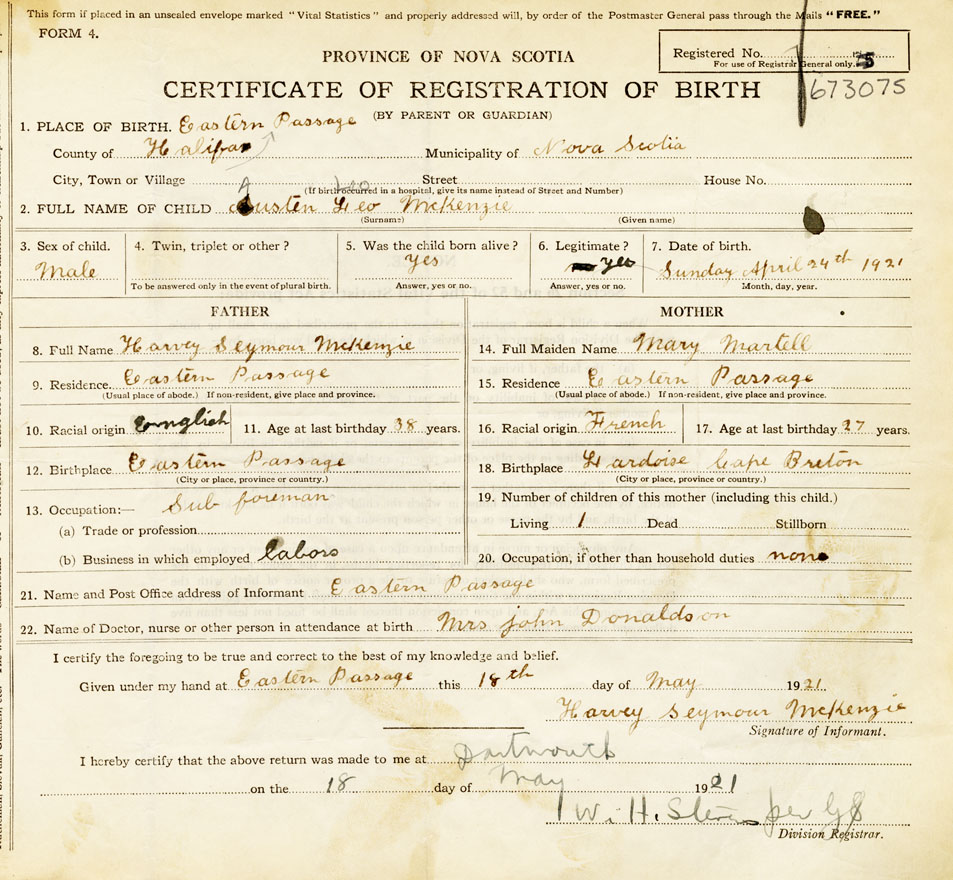 This form if placed in an unsealed envelope marked "Vital Statistics" and properly addressed will, by order of the Postmaster General pass through the Mails "FREE."
FORM 4.
Registered No.
For use of Registrar General only.
PROVINCE OF NOVA SCOTIA
CERTIFICATE OF REGISTRATION OF BIRTH 673075
(BY PARENT OR GUARDIAN)
1. PLACE OF BIRTH. Eastern Passage
County of Halifax Municipality of Nova Scotia
City, Town or Village Street House No.
(If birth occurred in a hospital, give its name instead of Street and Number)
A Leo
2. FULL NAME OF CHILD Austen Leo McKenzie
(Surname) (Given name)
3. Sex of child. Male
4. Twin, triplet or other?
To be answered only in the event of plural birth.
5. Was the child born alive? Yes
Answer, yes or no.
6. Legitimate? yes
Answer, yes or no.
7. Date of birth.
Sunday April 24th 1921
Month, day, year.
FATHER
8. Full Name Harvey Seymour McKenzie
9. Residence. Eastern Passage
(Usual place of abode.) If non-resident, give place and province.
10. Racial origin English 11. Age at last birthday 38 years.
12. Birthplace Eastern Passage
(City or place, province or country.)
13. Occupation:— Sub foreman
(a) Trade or profession
(b) Business in which employed labors
MOTHER
14. Full Maiden Name Mary Martell
15. Residence Eastern Passage
(Usual place of abode.) If non-resident, give place and province.
16. Racial origin French 17. Age at last birthday 27 years.
18. Birthplace Lardoise Cape Breton
(City or place, province or country.)
19. Number of children of this mother (including this child.)
Living 1 Dead Stillborn
20. Occupation, if other than household duties none
21. Name and Post Office address of Informant Eastern Passage
22. Name of Doctor, nurse or other person in attendance at birth Mrs John Donaldson
I certify the foregoing to be true and correct to the best of my knowledge and belief.
Given under my hand at Eastern Passage this 18th day of May 1921.
Harvey Seymour McKenzie
Signature of Informant.
I hereby certify that the above return was made to me at Dartmouth
on the 18 day of May 1921
W. H. per
Division Registrar.